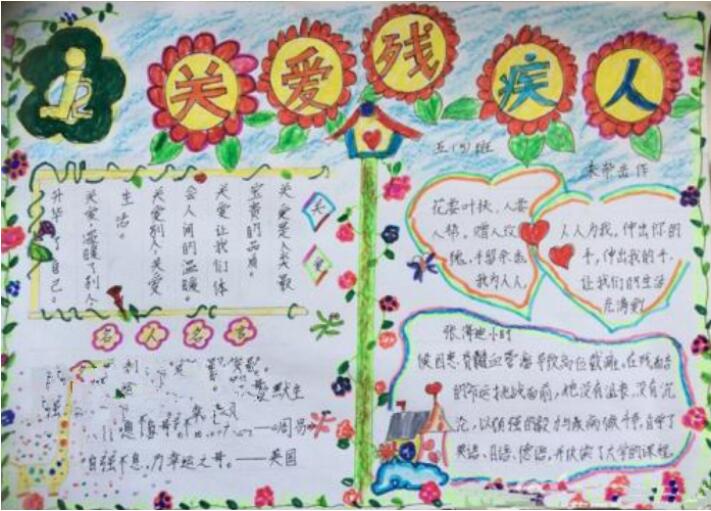 关爱残疾人
五(5)班
关爱
关爱是人类最
宝贵的品质。
关爱让我们体
会人间的温暖。
关爱别人,关爱
生活。
关爱,温暖了别人,
升华了自己。
名人名言
——《周易》
自强不息,乃幸运之母。——英国
花要叶扶,人要
人帮。赠人玫
瑰,手留余香
我为人人,
人人为我,伸出你的
手,伸出我的手,
让我们的生活
充满
张海迪小时
候因患脊髓血管瘤导致高位截瘫。在残酷
的命运挑战面前,她没有沮丧,没有沉
沦,以顽强的毅力与疾病做斗争,自学了
英语、日语、德语,并攻读了大学的课程。